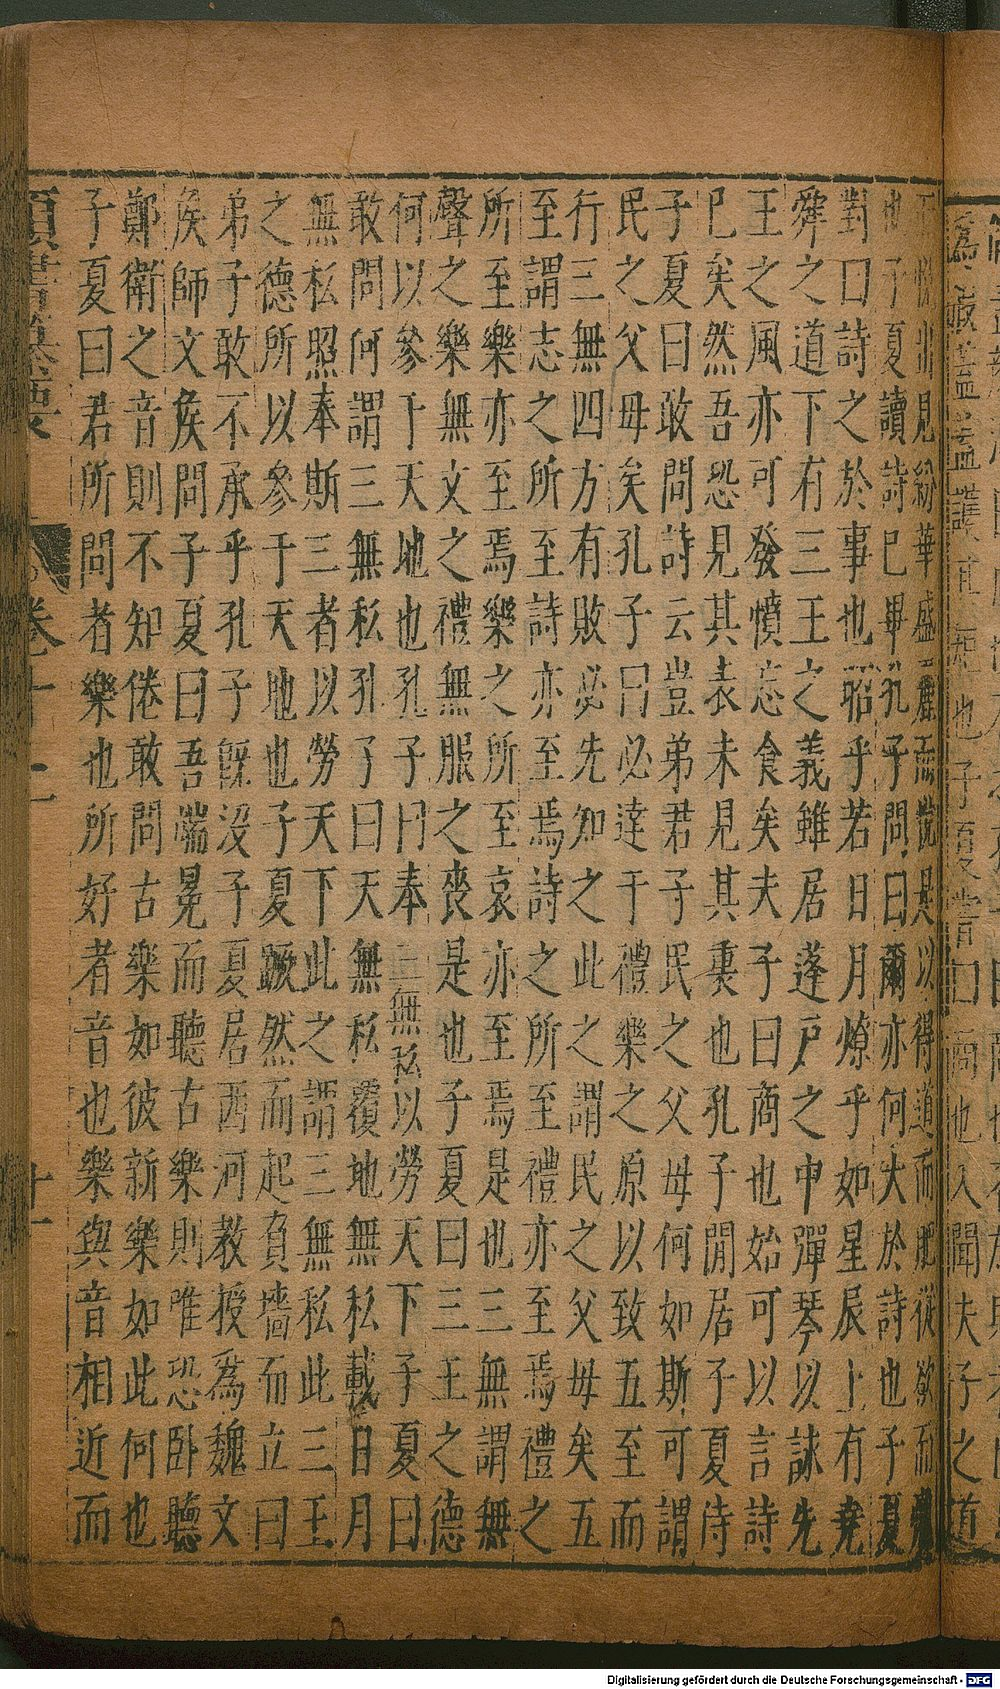 而出見紛華盛麗而悅是以得道而肥從欲而
也子夏讀詩已畢孔子問曰爾亦何大於詩也子夏
對曰詩之於事也昭乎若日月燎乎如星辰上有堯
舜之道下有三王之義雖居蓬戶之中彈琴以詠先
王之風亦可發憤忘食矣夫子曰商也始可以言詩
已矣然吾恐見其表未見其裏也孔子閒居子夏侍
子夏曰敢問詩云豈弟君子民之父母何如斯可謂
民之父毋矣孔子曰必達于禮樂之原以致五至而
行三無四方有敗必先知之此之謂民之父毋矣五
至謂志之所至詩亦至焉詩之所至禮亦至焉禮之
所至樂亦至焉樂之所至哀亦至焉是也三無謂無
聲之樂無文之禮無服之喪是也子夏曰三王之德
何以參于天地也孔子曰奉三無私以勞天下子夏曰
敢問何謂三無私孔子曰天無私覆地無私載日月
無私照奉斯三者以勞天下此之謂三無私此三王
之德所以參于天地也子夏蹶然而起負墻而立曰
弟子敢不承乎孔子旣沒子夏居西河教授爲魏文
侯師文侯問子夏曰吾端冕而聽古樂則唯恐臥聽
鄭衛之音則不知倦敢問古樂如彼新樂如此何也
子夏曰君所問者樂也所好者音也樂與音相近而
卷十二
十一
Digitalisierung gefördert durch die Deutsche Forschungsgemeinschaft - DFG